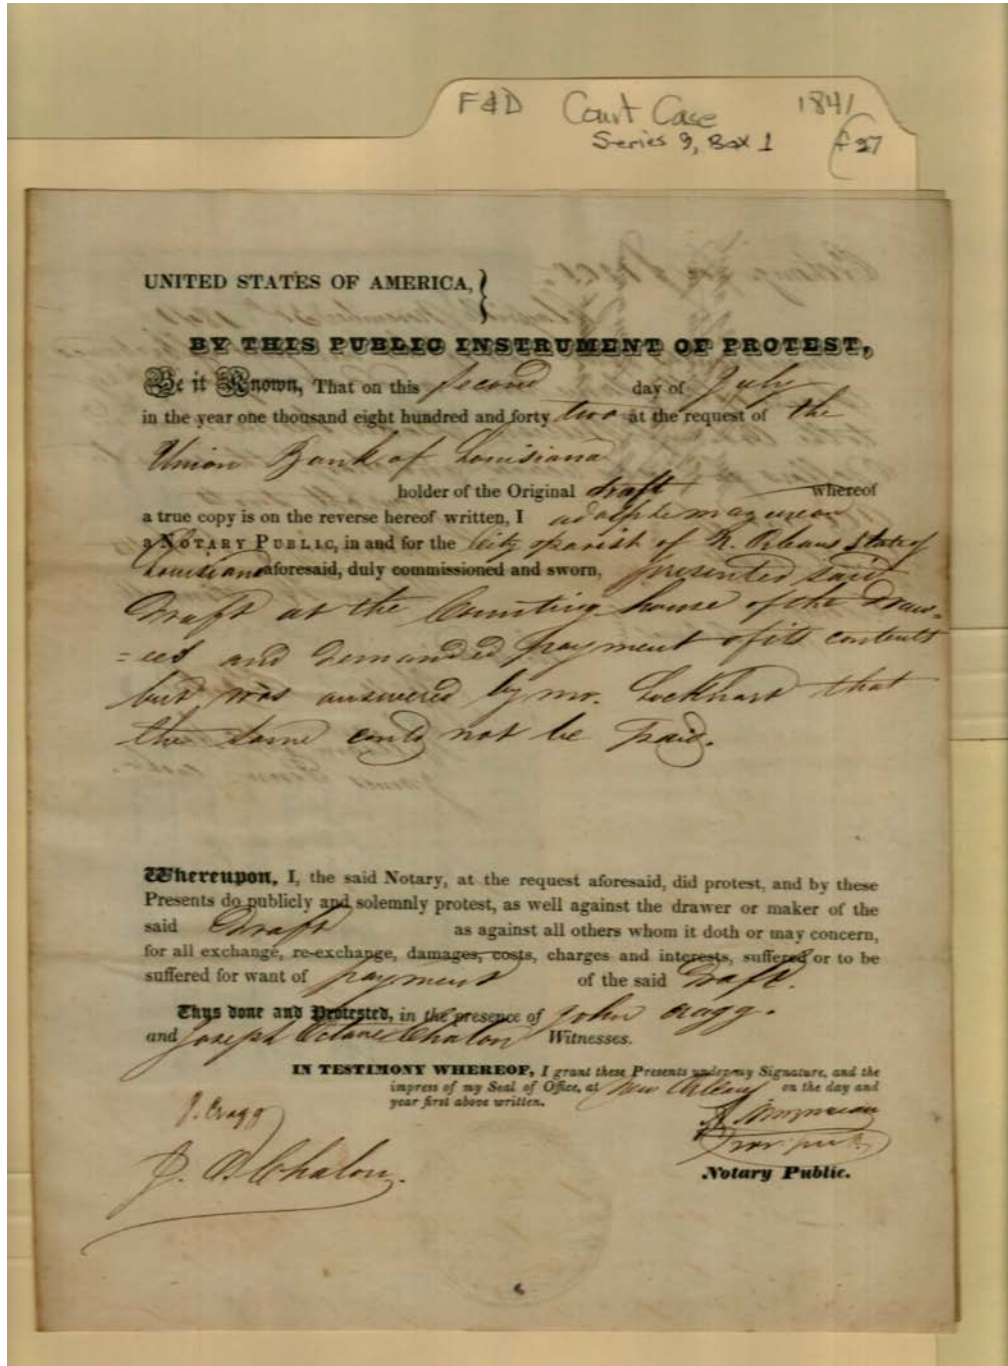 F&D Court Case 1841
Series 3, Box 1 f 37
UNITED STATES OF AMERICA,
BY THIS PUBLIC INSTRUMENT OF PROTEST,
Be it Known, That on this Second day of July
in the year one thousand eight hundred and forty two at the request of the
Union Bank of Louisiana
holder of the Original draft whereof
a true copy is on the reverse hereof written, I adolphe mazureau
a NOTARY PUBLIC, in and for the City & parish of N. Orleans State of
Louisiana aforesaid, duly commissioned and sworn, presented said
draft at the Counting house of the draw-
=ees and demanded payment of its contents
but was answered by mr. Lockhart that
the same could not be paid.
Whereupon, I, the said Notary, at the request aforesaid, did protest, and by these
Presents do publicly and solemnly protest, as well against the drawer or maker of the
said Draft as against all others whom it doth or may concern,
for all exchange, re-exchange, damages, costs, charges and interests, suffered or to be
suffered for want of payment of the said Draft.
Thus done and Protested, in the presence of John Cragg.
and Joseph Octave Chalon Witnesses.
IN TESTIMONY WHEREOF, I grant these Presents under my Signature, and the
impress of my Seal of Office, at New Orleans on the day and
year first above written.
J. Cragg
A. Mazureau
J. O. Chalon.
Notary Public.